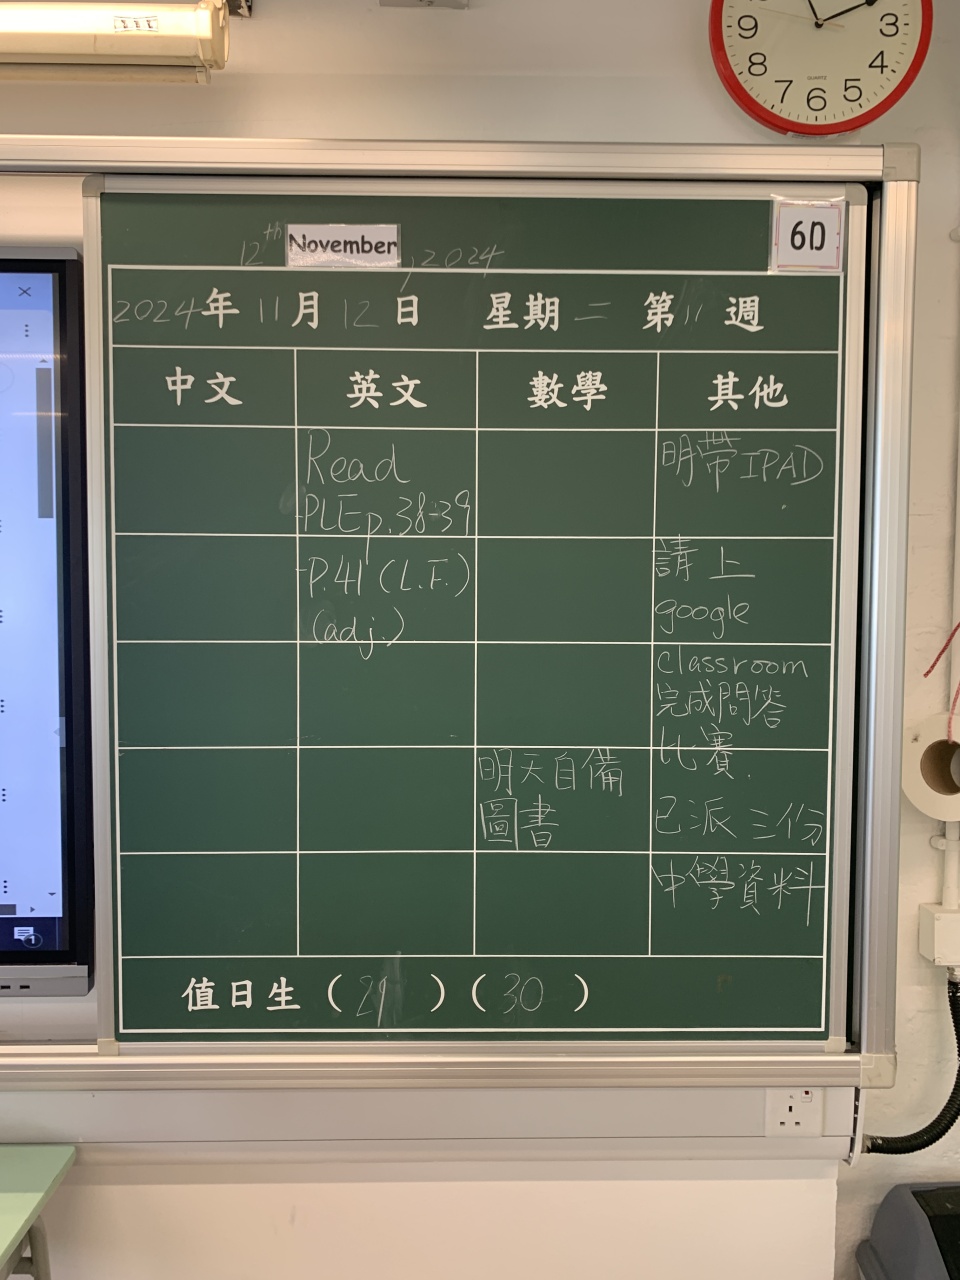 9
3
8
4
7
6
5
QUARTZ
12th November, 2024
6D
2024年 11月 12日 星期二 第 11 週
中文 英文 數學 其他
Read
PLE p.38-39
P.41 (L.F.)
(adj.)
明天自備
圖書
明帶IPAD
請上
google
classroom
完成問答
比賽.
已派三份
中學資料
值日生 ( 29 ) ( 30 )
1